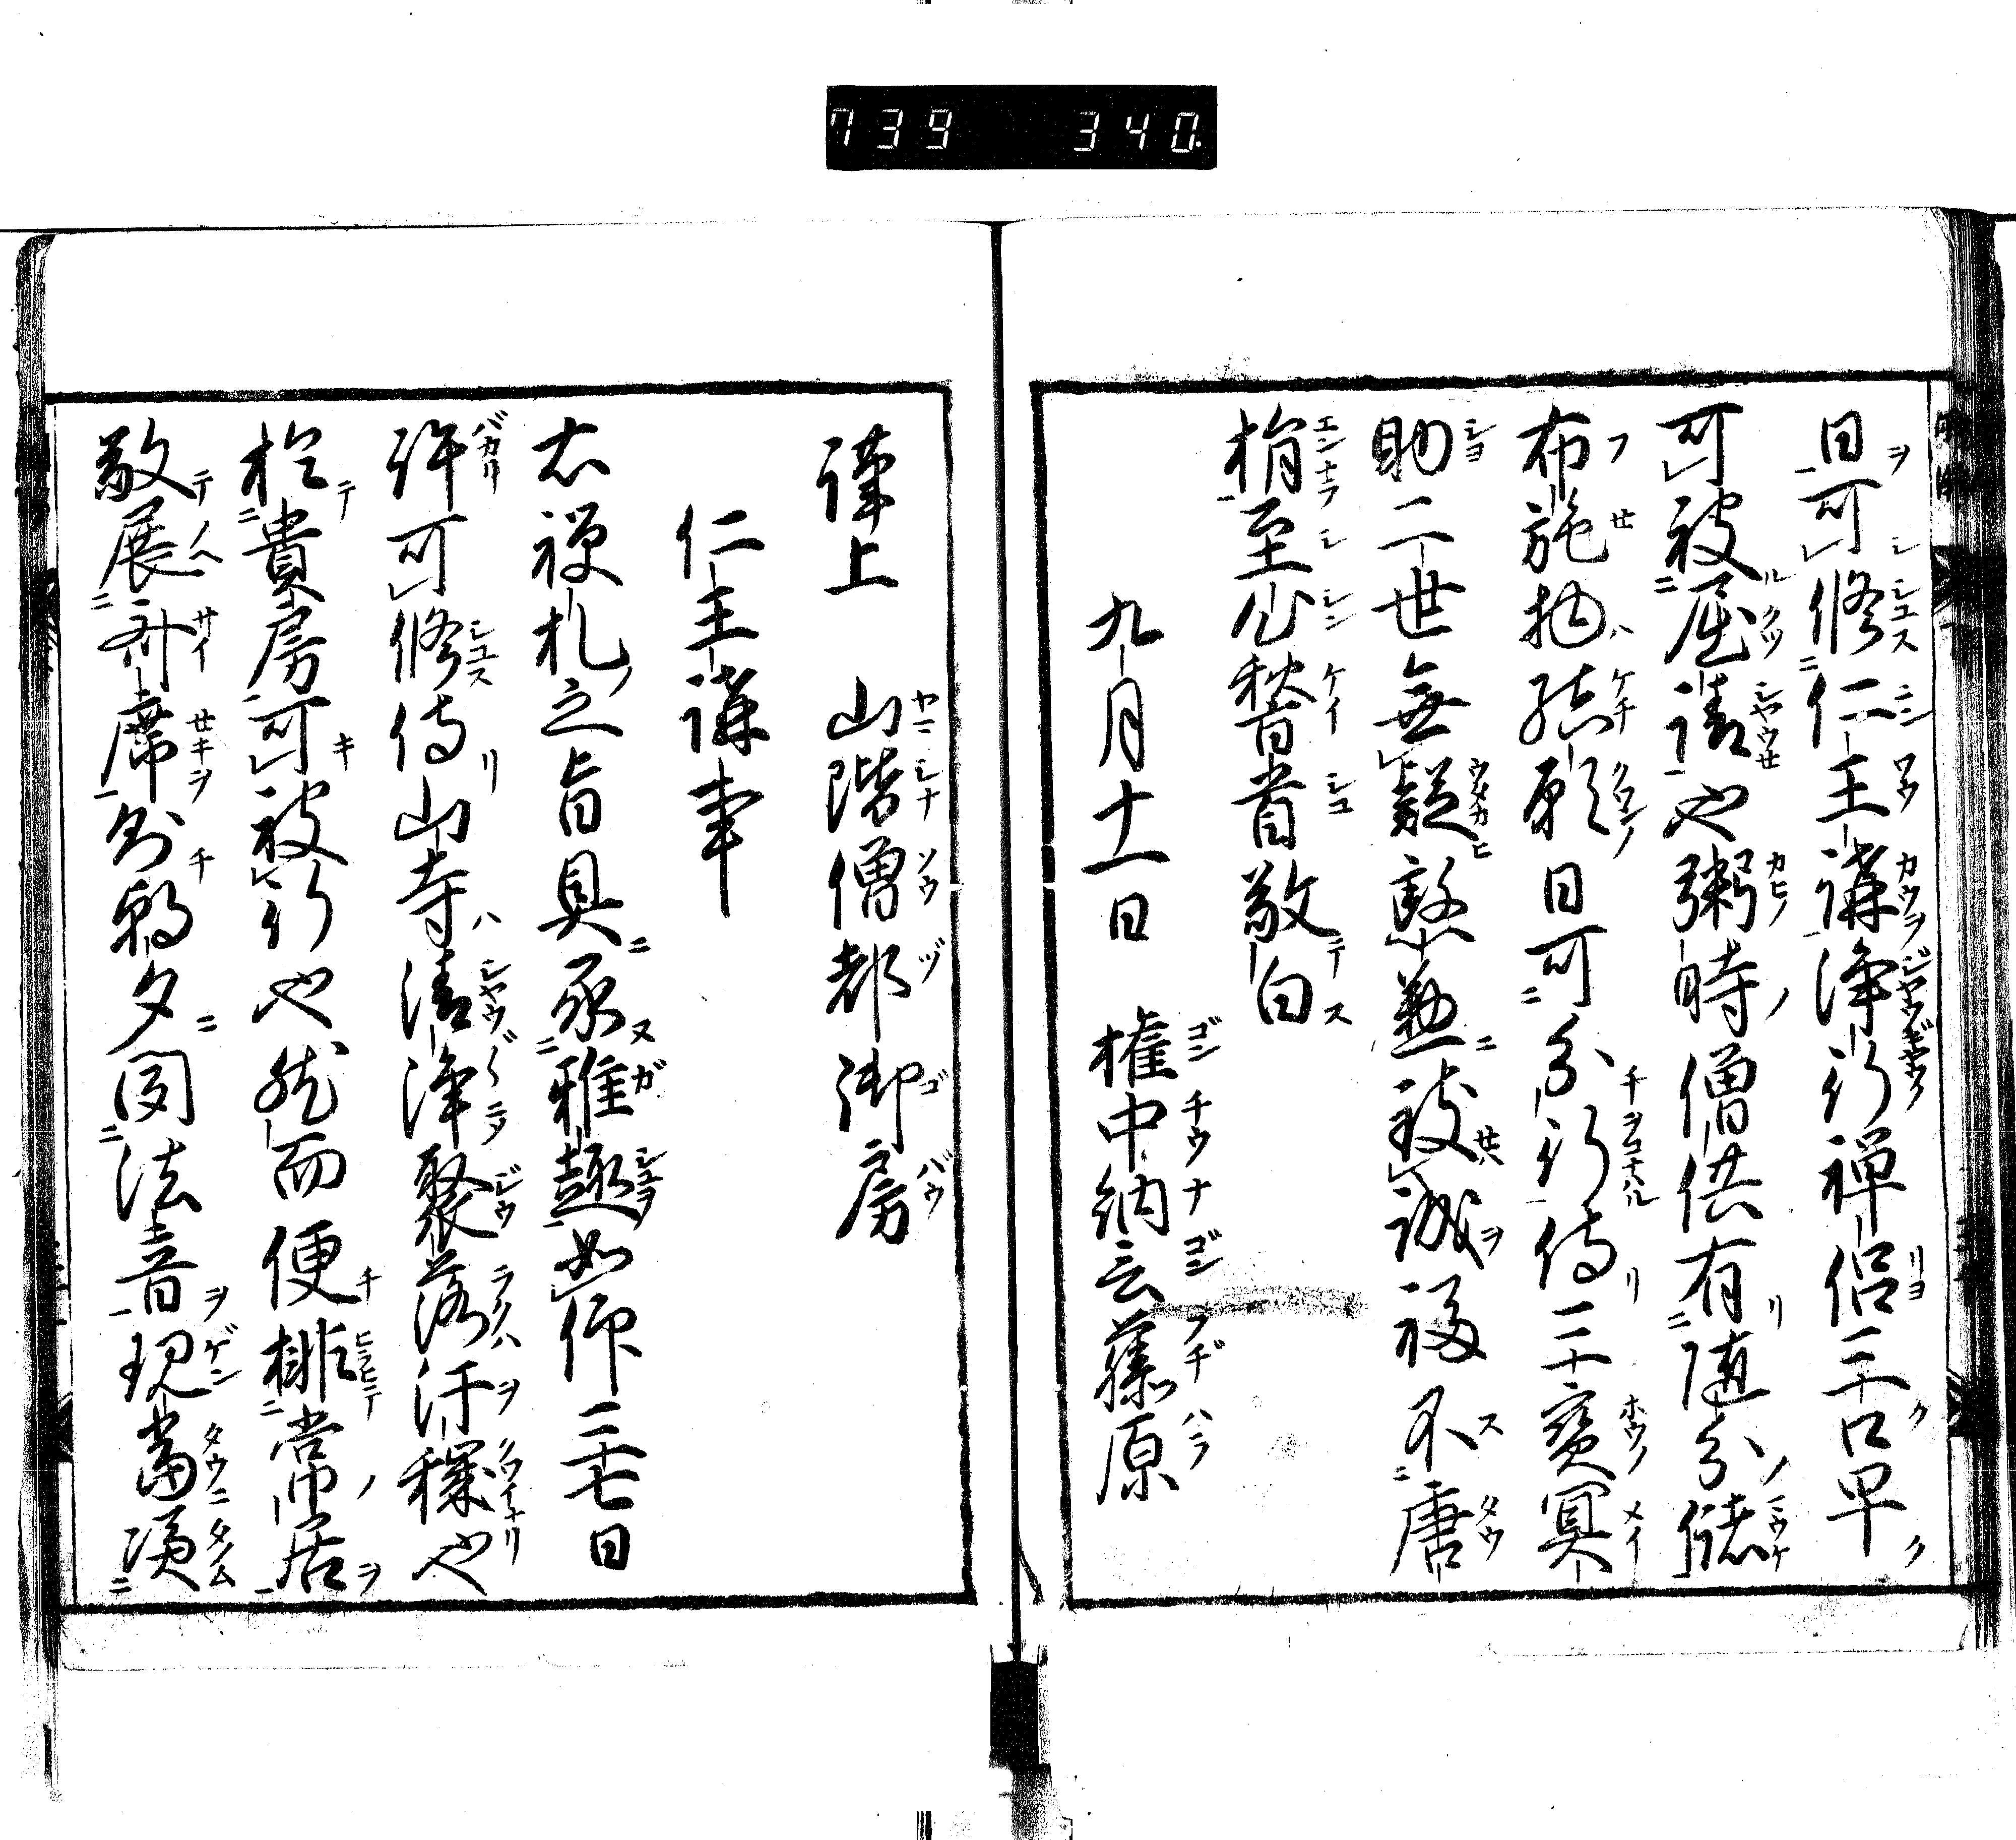 739 340
日可修仁王講浄行禅侶三十口早
可被屈請也粥時僧供有随分儲
布施物結願日可分行侍三宝冥
助二世無疑慇懃致誠福不唐
捐至心稽首敬白
九月十一日 権中納言藤原
謹上 山階僧都御房
仁王講事
右禅札之旨具承雅趣如仰二七日
許可修侍山寺清浄聚落汙穢也
於貴房可被行也然而便排常居
敬展斎席朝夕聞法音現当須